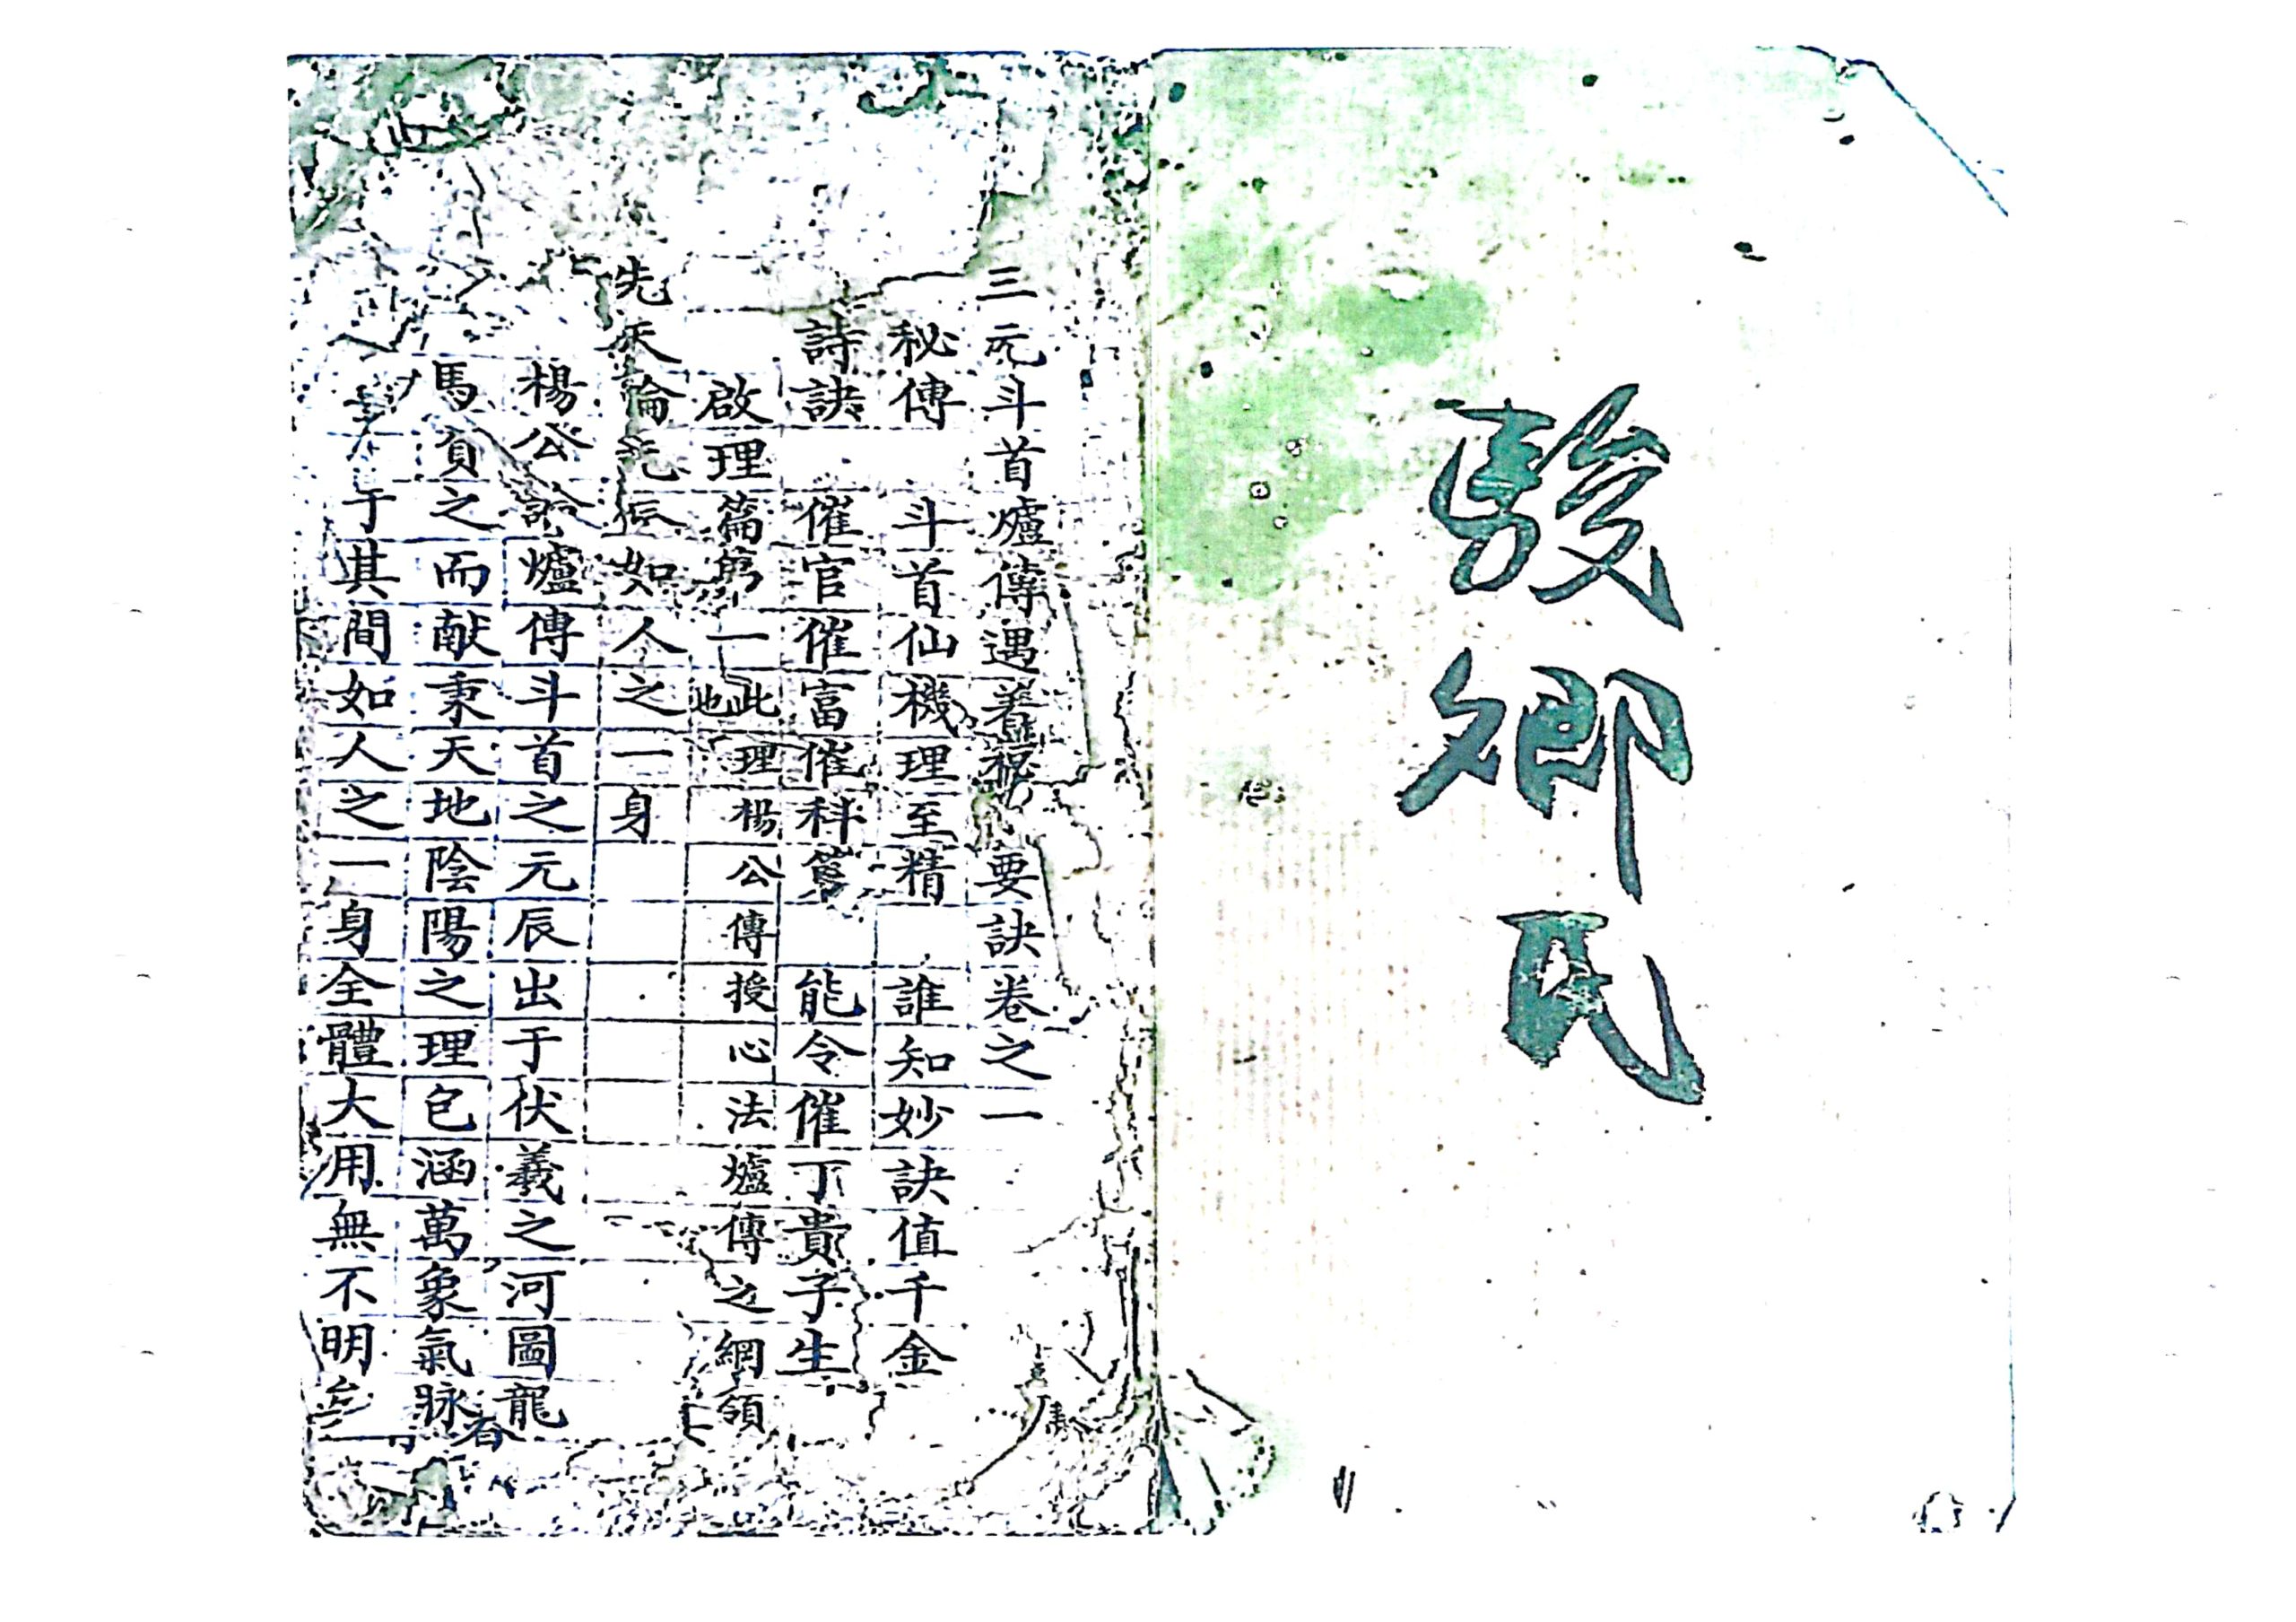 駿卿氏
三元斗首爐傳遇 要訣卷之一
秘傳 斗首仙機理至精 誰知妙訣值千金
詩訣 催官催富催科 能令催丁貴子生
啟理篇第一 此理楊公傳授心法爐傳之網領也
先天論元辰如人之一身
楊公 爐傳斗首之元辰出于伏羲之河圖龍
馬負之而献秉天地陰陽之理包涵萬象氣脉
于其間如人之一身全體大用無不明矣